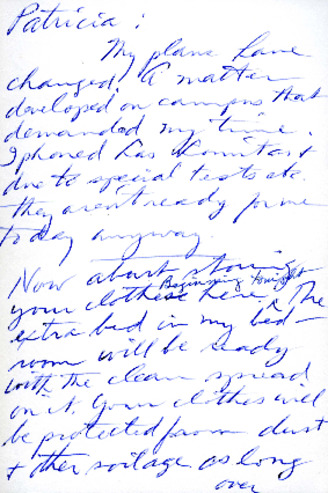 Patricia:
My plans have
changed. A matter
developed on campus that
demanded my time.
I phoned Las Lomitas &
due to special tests etc.
they aren't ready for me
today anyway.
Now about storing
your clothes here, Beginning tonight The
extra bed in my bed-
room will be ready
with the clean spread
on it. Your clothes will
be protected from dust
& other soilage as long
over